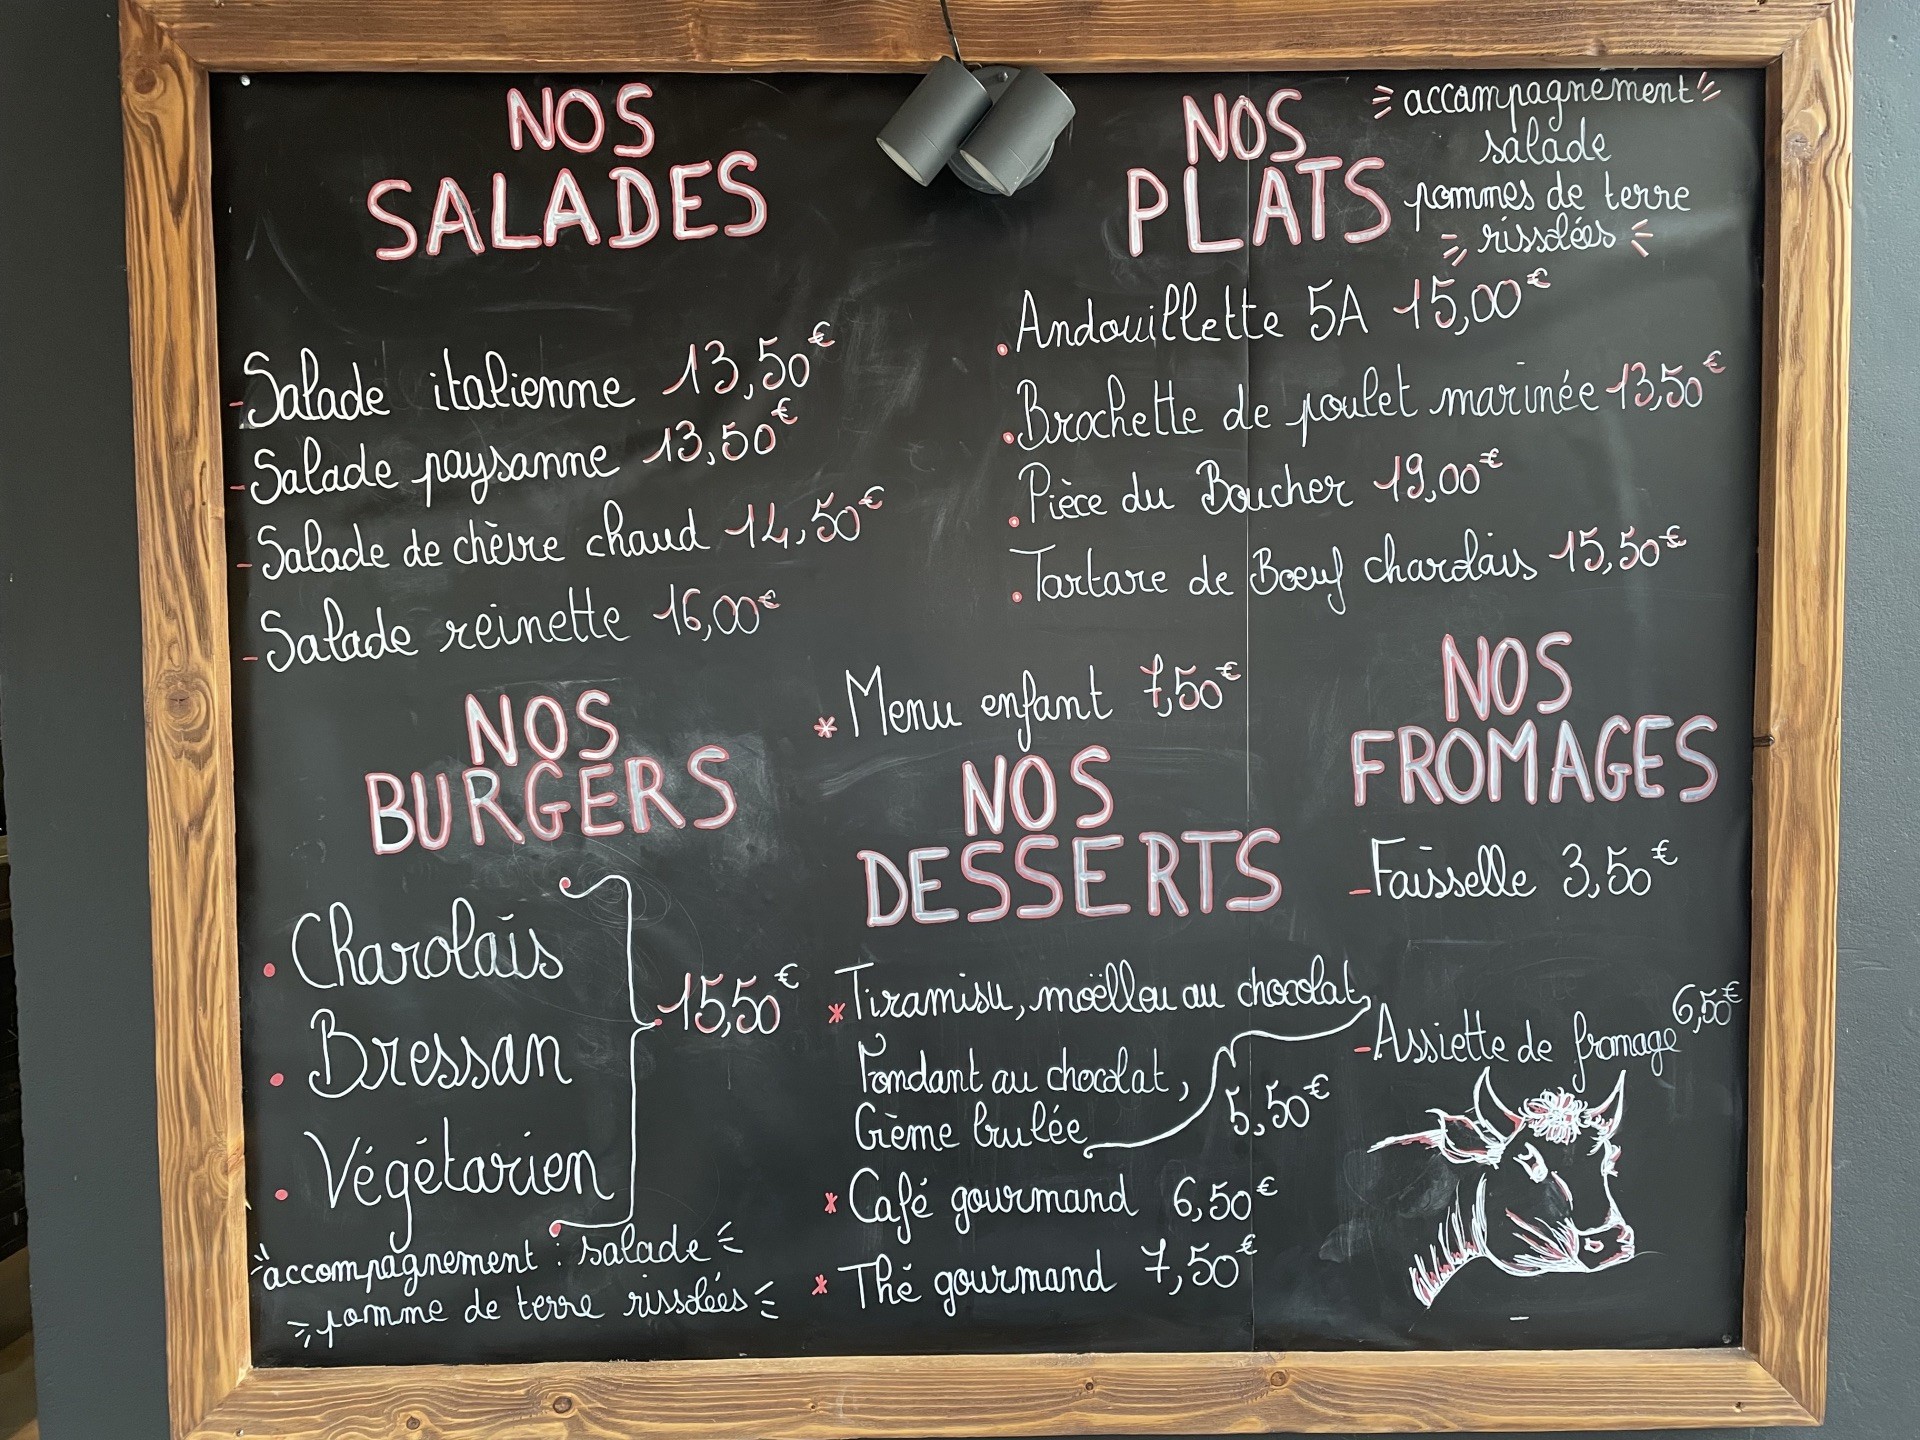 NOS
SALADES
-Salade italienne 13,50€
-Salade paysanne 13,50€
-Salade de chèvre chaud 14,50€
-Salade reinette 16,00€
NOS
PLATS
accompagnement
salade
pommes de terre
rissolées
.Andouillette 5A 15,00€
.Brochette de poulet marinée 13,50€
.Pièce du Boucher 19,00€
.Tartare de Bœuf charolais 15,50€
* Menu enfant 7,50€
NOS
BURGERS
. Charolais
. Bressan
. Végétarien
15,50€
accompagnement : salade
pomme de terre rissolées
NOS
DESSERTS
* Tiramisu, moëlleu au chocolat,
Fondant au chocolat,
Crème brulée
5,50€
* Café gourmand 6,50€
* Thé gourmand 7,50€
NOS
FROMAGES
-Faisselle 3,50€
-Assiette de fromage 6,50€